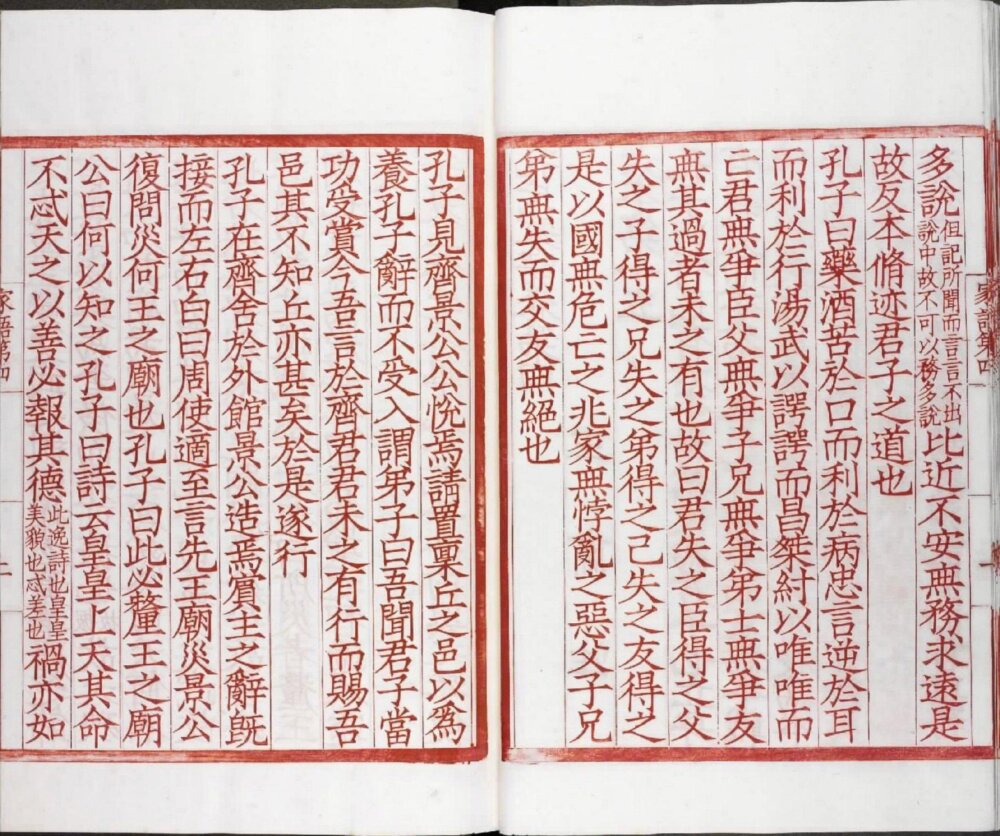 多說但記所聞而言言不出說中故不可以務多說比近不安無務求遠是
故反本脩迹君子之道也
孔子曰藥酒苦於口而利於病忠言逆於耳
而利於行湯武以諤諤而昌桀紂以唯唯而
亡君無爭臣父無爭子兄無爭弟士無爭友
無其過者未之有也故曰君失之臣得之父
失之子得之兄失之弟得之己失之友得之
是以國無危亡之兆家無悖亂之惡父子兄
弟無失而交友無絕也
孔子見齊景公公悅焉請置稟丘之邑以為
養孔子辭而不受入謂弟子曰吾聞君子當
功受賞今吾言於齊君君未之有行而賜吾
邑其不知丘亦甚矣於是遂行
孔子在齊舍於外館景公造焉賔主之辭旣
接而左右白曰周使適至言先王廟災景公
復問災何王之廟也孔子曰此必釐王之廟
公曰何以知之孔子曰詩云皇皇上天其命
不忒天之以善必報其德此逸詩也皇皇美貌也忒差也禍亦如
家語第四